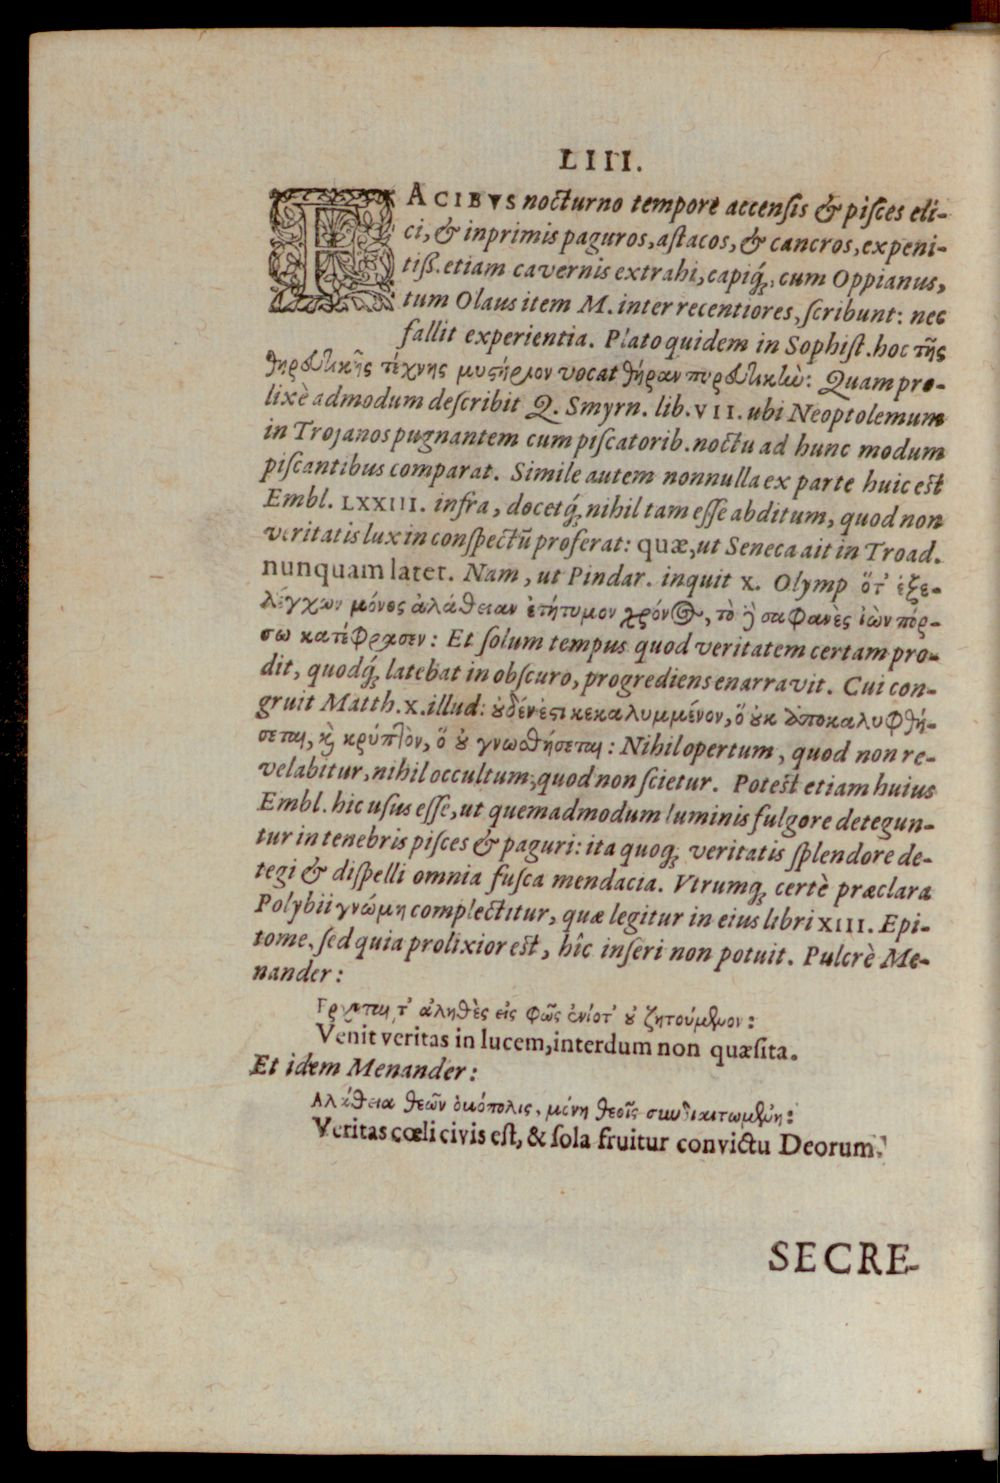 LIII.
FACIBVS nocturno tempore accensis & pisces eli-
ci, & inprimis paguros, astacos, & cancros, ex peni-
tiß. etiam cavernis extrahi, capiq́;, cum Oppianus,
tum Olaus item M. inter recentiores, scribunt: nec
fallit experientia. Plato quidem in Sophist. hoc τῆς
θηρευτικῆς τέχνης μυστήριον vocat θήραν πυρευτικὼ: Quam pro-
lixè admodum describit Q. Smyrn. lib. VII. ubi Neoptolemum
in Trojanos pugnantem cum piscatorib. noctu ad hunc modum
piscantibus comparat. Simile autem nonnulla ex parte huic est
Embl. LXXIII. infra, docetq́; nihil tam esse abditum, quod non
veritatis lux in conspectũ proferat: quæ, ut Seneca ait in Troad.
nunquam latet. Nam, ut Pindar. inquit X. Olymp ὅτ' ἐξε-
λέγχων μόνος ἀλάθειαν ἐτήτυμον χρόνος, τὸ ἢ σαφανὲς ἰὼν πόρ-
σω κατέφρασεν: Et solum tempus quod veritatem certam pro-
dit, quodq́; latebat in obscuro, progrediens enarravit. Cui con-
gruit Matth. X. illud: οὐδέν ἐστι κεκαλυμμένον, ὅ οὐκ ἀποκαλυφθή-
σεται, καὶ κρύπτὸν, ὅ οὐ γνωσθήσεται: Nihil opertum, quod non re-
velabitur, nihil occultum, quod non scietur. Potest etiam huius
Embl. hic usus esse, ut quemadmodum luminis fulgore detegun-
tur in tenebris pisces & paguri: ita quoq; veritatis splendore de-
tegi & dispelli omnia fusca mendacia. Vtrumq; certè præclara
Polybii γνώμη complectitur, quæ legitur in eius libri XIII. Epi-
tome, sed quia prolixior est, hîc inseri non potuit. Pulcrè Me-
nander:
Ερχεται τ' ἀληθὲς εἰς φῶς ἐνίοτ' οὐ ζητούμενον:
Venit veritas in lucem, interdum non quæsita.
Et idem Menander:
Αλάθεια θεῶν ὁμόπολις, μόνη θεοῖς
Veritas cœli civis est, & sola fruitur convictu Deorum.
SECRE-